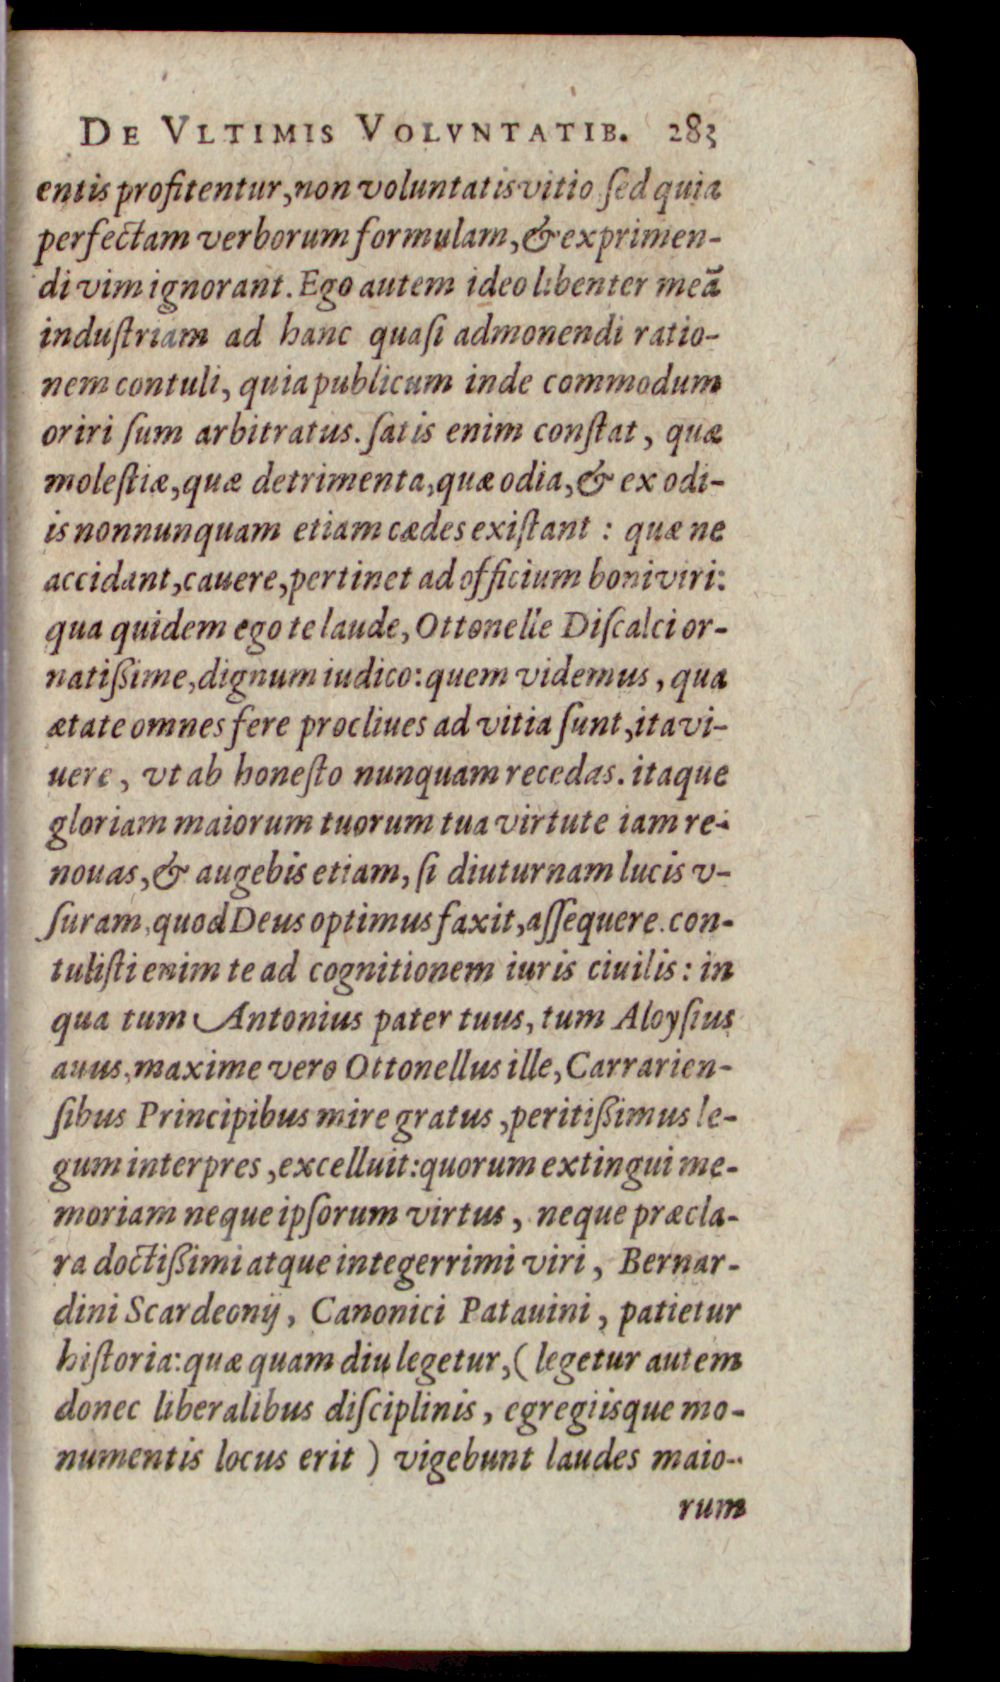 DE VLTIMIS VOLVNTATIB. 283
entis profitentur, non voluntatis vitio ſed quia
perfectam verborum formulam, & exprimen-
di vim ignorant. Ego autem ideo libenter meā
induſtriam ad hanc quaſi admonendi ratio-
nem contuli, quia publicum inde commodum
oriri ſum arbitratus. ſatis enim conſtat, quæ
moleſtiæ, quæ detrimenta, quæ odia, & ex odi-
is nonnunquam etiam cædes exiſtant : quæ ne
accidant, cauere, pertinet ad officium boni viri:
qua quidem ego te laude, Ottonelle Diſcalci or-
natißime, dignum iudico: quem videmus, qua
ætate omnes fere procliues ad vitia ſunt, ita vi-
uere, vt ab honeſto nunquam recedas. itaque
gloriam maiorum tuorum tua virtute iam re-
nouas, & augebis etiam, ſi diuturnam lucis v-
ſuram, quod Deus optimus faxit, aſſequere. con-
tuliſti enim te ad cognitionem iuris ciuilis: in
qua tum Antonius pater tuus, tum Aloyſius
auus, maxime vero Ottonellus ille, Carrarien-
ſibus Principibus mire gratus, peritißimus le-
gum interpres, excelluit: quorum extingui me-
moriam neque ipſorum virtus, neque præcla-
ra doctißimi atque integerrimi viri, Bernar-
dini Scardeonij, Canonici Patauini, patietur
hiſtoria: quæ quam diu legetur, ( legetur autem
donec liberalibus diſciplinis, egregiisque mo-
numentis locus erit ) vigebunt laudes maio-
rum